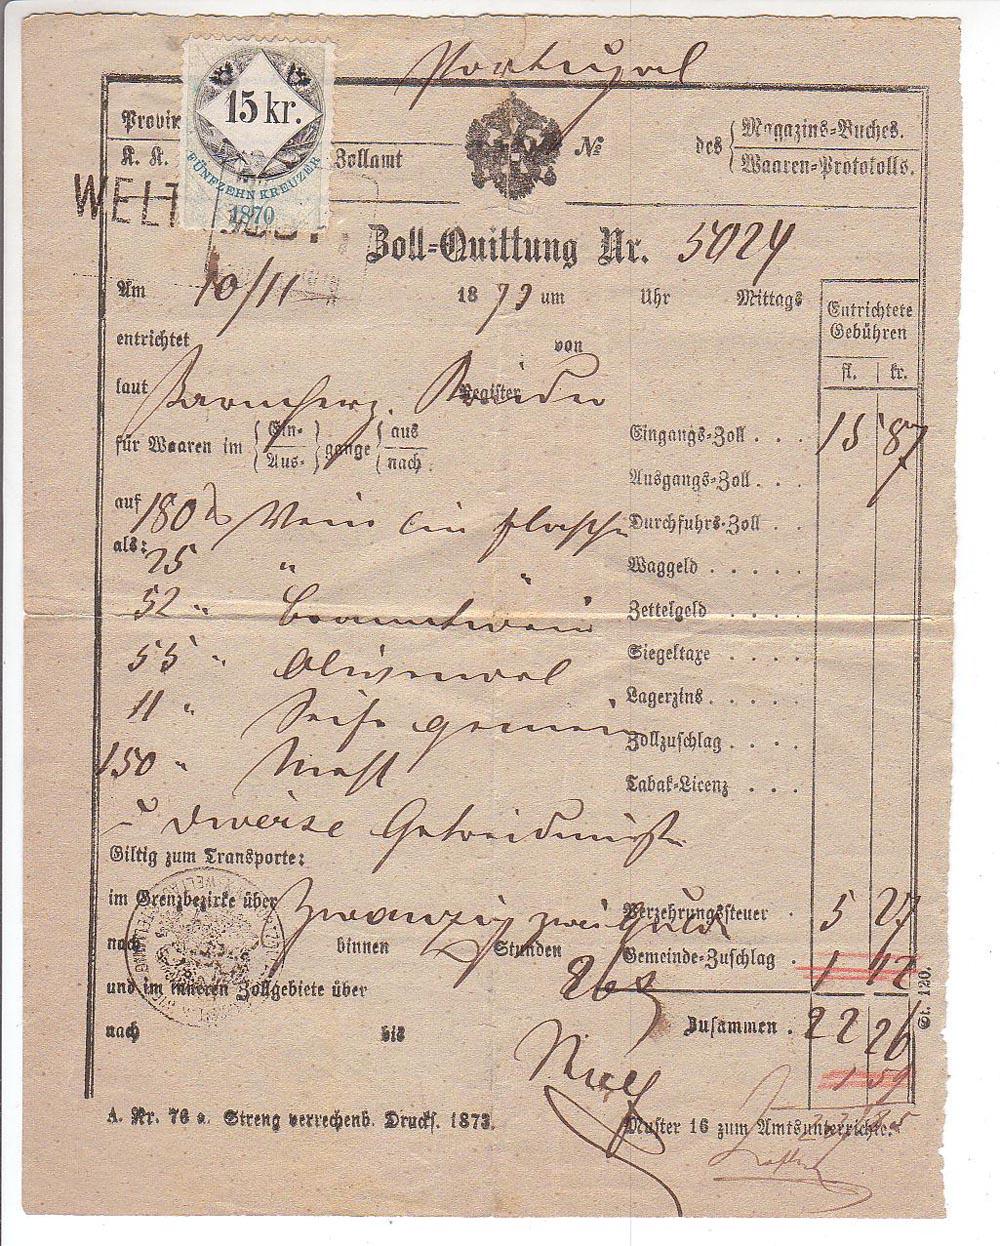 Portugal
15 kr.
FÜNFZEHN KREUZER
1870
Provin
K. K. Zollamt
№
des Magazins-Buches.
Waaren-Protokolls.
WELT
Zoll-Quittung Nr. 5024
Am 10/11 1873 um Uhr Mittags
Entrichtete Gebühren
fl. kr.
entrichtet von
laut Barmherz. Brüder Register
für Waaren im Ein- Aus- gange aus nach
Eingangs-Zoll . . . 15 87
Ausgangs-Zoll . . .
auf 180 Wein in Flaschen
Durchfuhrs-Zoll . .
als: 25 "
Waggeld . . . . .
52 " Branntwein
Zettelgeld . . . .
55 " Olivenoel
Siegeltaxe . . . .
11 " Seife gemein
Lagerzins . . . . .
Zollzuschlag . . . .
150 " Mehl
Tabak-Licenz . . .
u diverse
Giltig zum Transporte:
im Grenzbezirke über Zwanzig zwei Guld
Verzehrungssteuer . 5 27
nach binnen Stunden
26 Gemeinde-Zuschlag . 1 12
und im inneren Zollgebiete über
Zusammen . 22 26
nach bis
1 59
St. 120.
A. Nr. 76 a. Streng verrechenb. Drucks. 1873.
Muster 16 zum Amtsunterrichte.